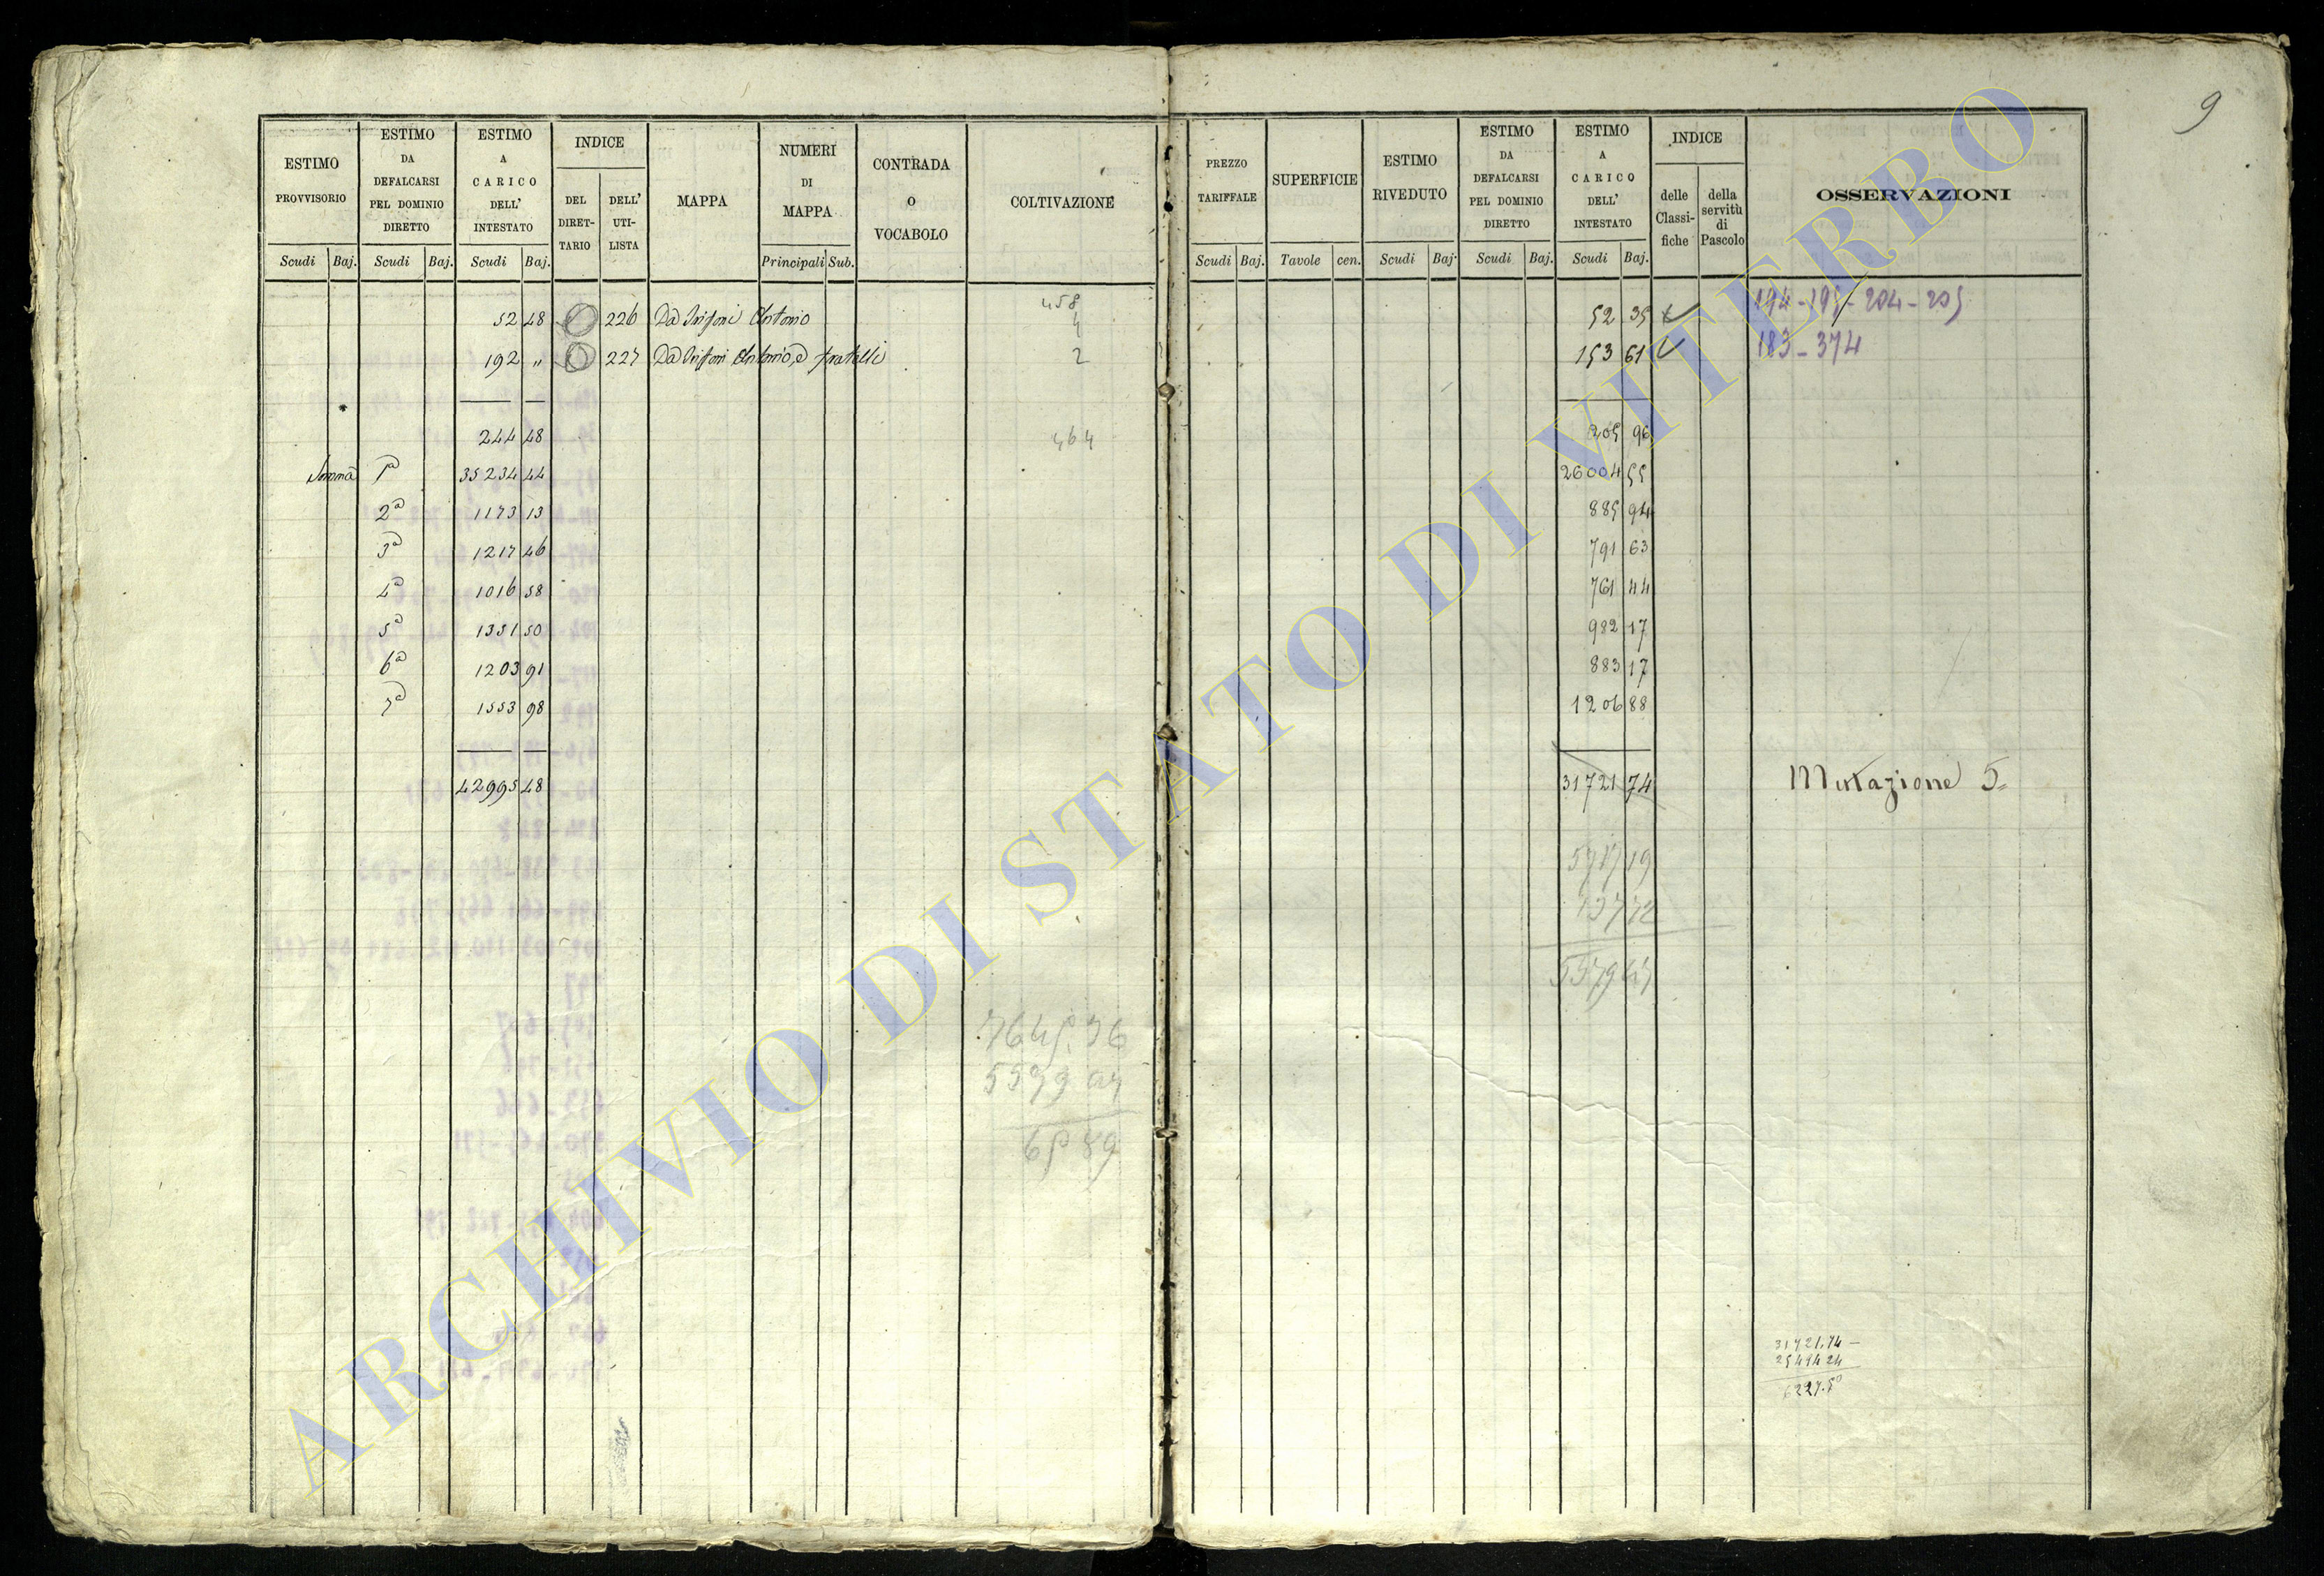 9
ESTIMO PROVVISORIO
ESTIMO DA DEFALCARSI PEL DOMINIO DIRETTO
ESTIMO A CARICO DELL' INTESTATO
INDICE
DEL DIRET-TARIO
DELL' UTI-LISTA
MAPPA
NUMERI DI MAPPA
CONTRADA O VOCABOLO
COLTIVAZIONE
Scudi Baj. Scudi Baj. Scudi Baj. Principali Sub.
PREZZO TARIFFALE
SUPERFICIE
ESTIMO RIVEDUTO
ESTIMO DA DEFALCARSI PEL DOMINIO DIRETTO
ESTIMO A CARICO DELL' INTESTATO
INDICE
delle Classi-fiche
della servitù di Pascolo
OSSERVAZIONI
Scudi Baj. Tavole cen. Scudi Baj. Scudi Baj. Scudi Baj.
458
52 48 226 Da Antonio 4 52 35 194-195-204-205
192 " 227 Da Antonio, e fratelli 2 153 61 183-374
244 48 464 205 96
Somma 1a 35234 44 26004 55
2a 1173 13 885 94
3a 1217 46 791 63
4a 1016 58 761 44
5a 1351 50 982 17
6a 1203 91 883 17
7a 1553 98 1206 88
42995 48 31721 74 Mutazione 5=
31721.74
25494 24
6227.50
ARCHIVIO DI STATO DI VITERBO